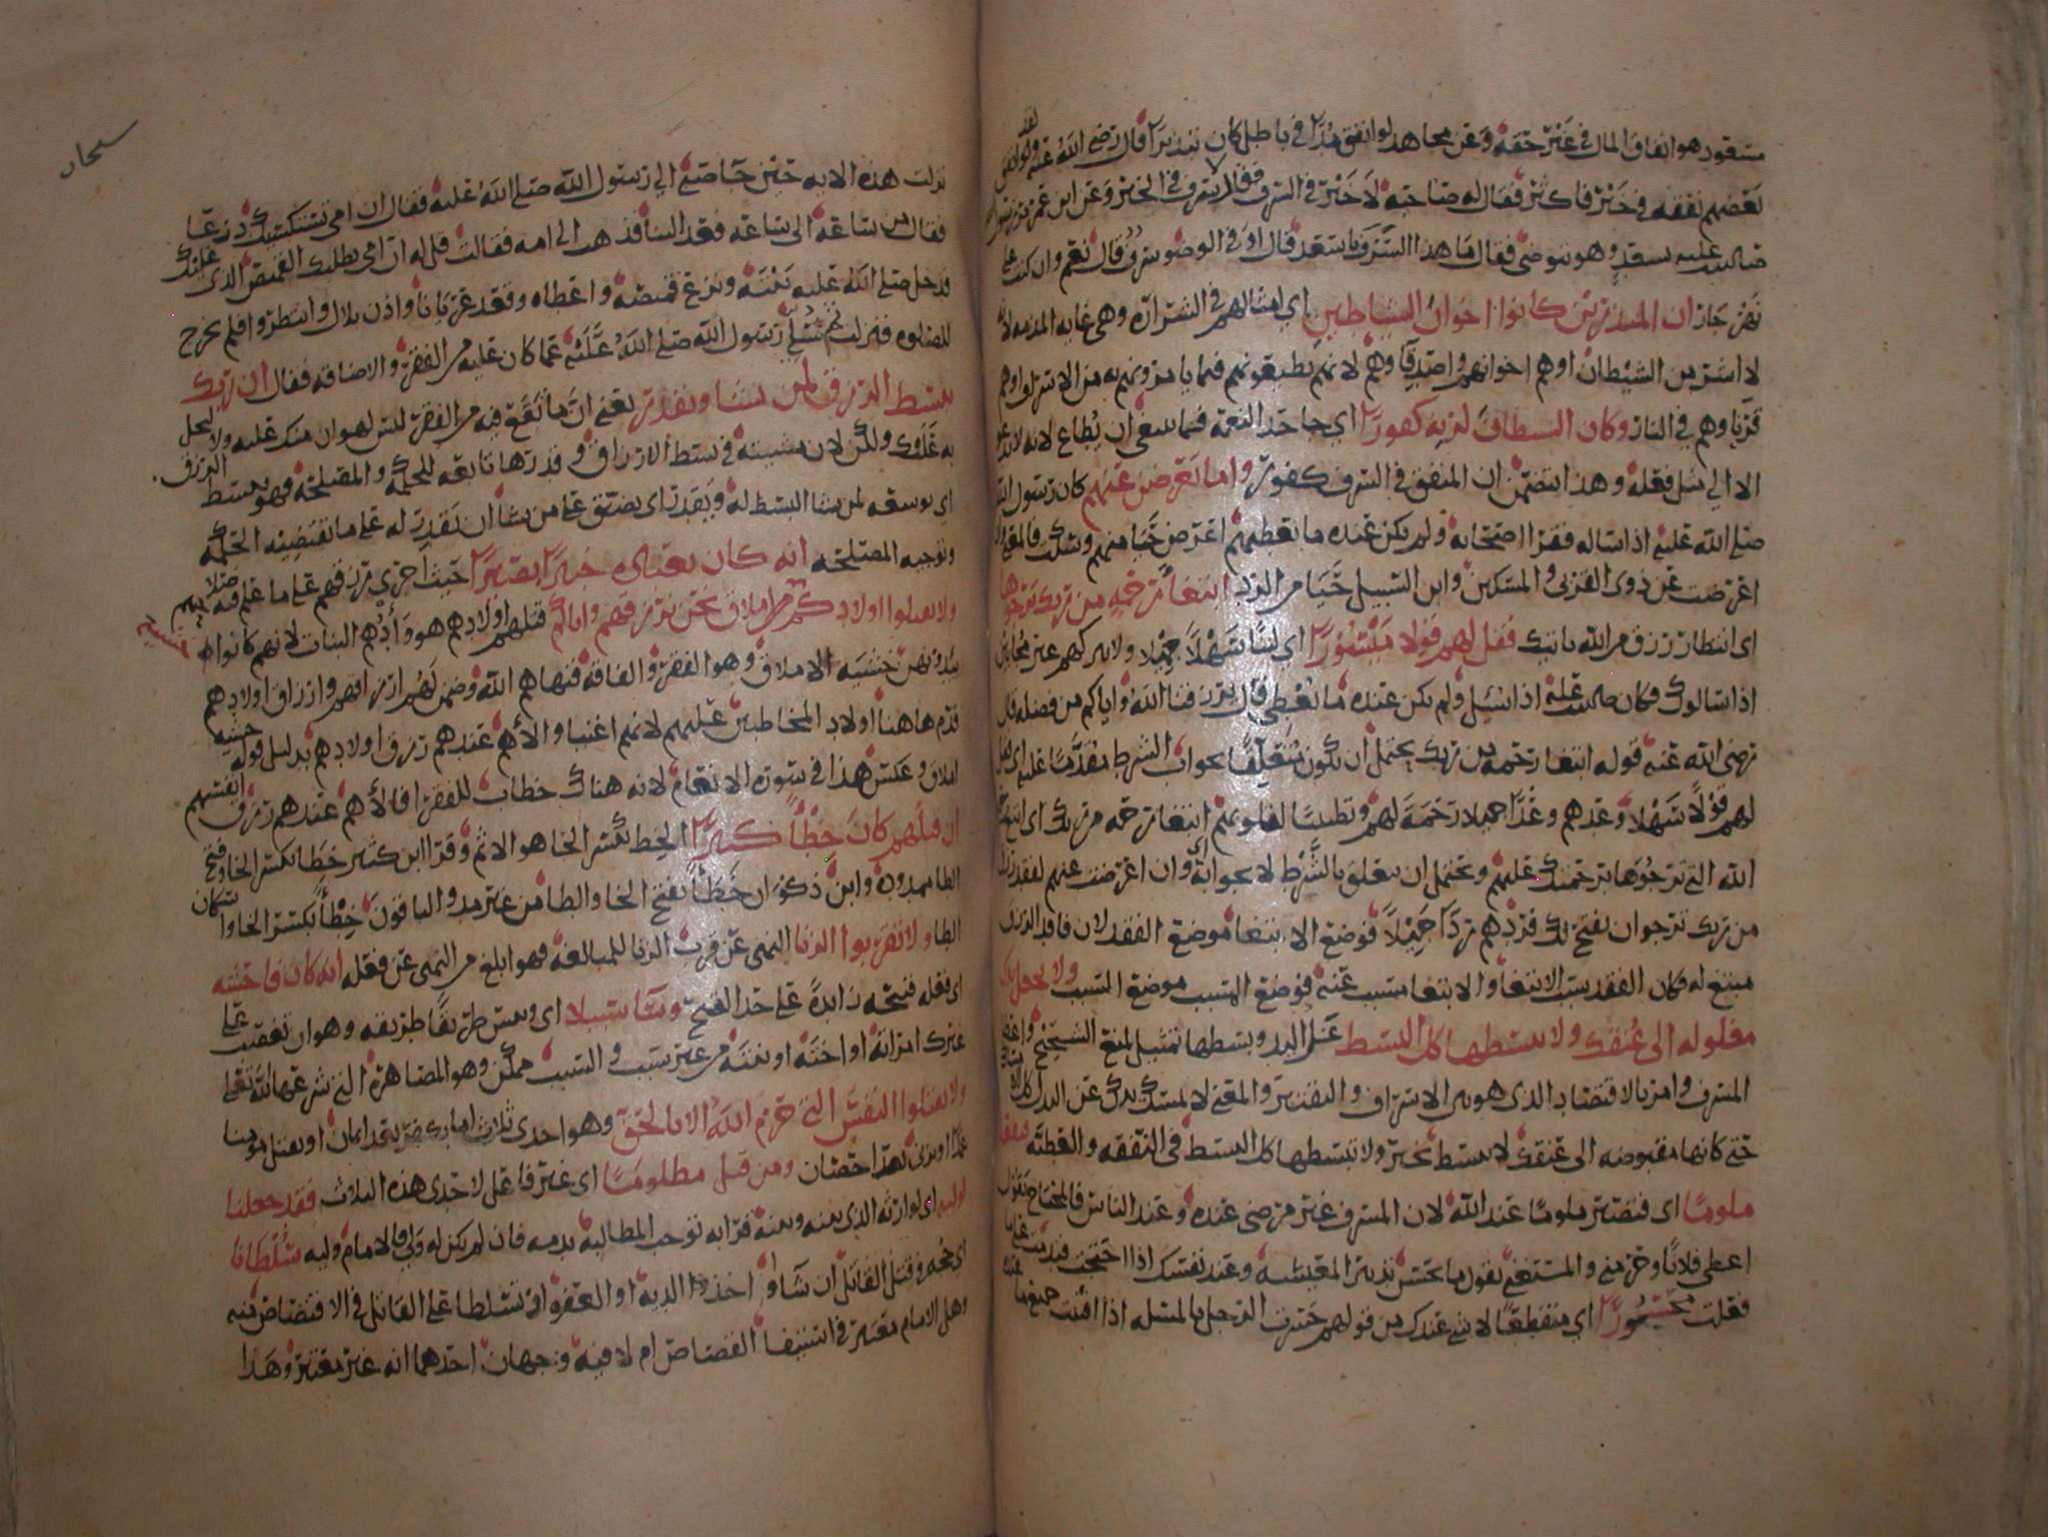 مسعود هو انفاق المال في غير حقه وعن مجاهد لو انفق مدا في باطل كان تبذيرا قال رضي الله عنه ولو انفق
بعضهم نفقه في خير فاكثر فقال له صاحبه لا خير في السرف فقال لا سرف في الخير وعن ابن عمر مر رسول الله
صلى الله عليه بسعد وهو يتوضى فقال ما هذا السرف يا سعد قال او في الوضو سرف قال نعم وان كنت على
نهر جار ان المبذرين كانوا اخوان الشياطين اي امثالهم في الشرارة وهي غايه المذمه لانه
لا اشر من الشيطان او هم اخوانهم واصدقاوهم لانهم يطيعونهم فيما يامرونهم به من الاسراف او هم
قرناوهم في النار وكان الشيطان لربه كفورا اي جاحد النعمه فما ينبغي ان يطاع لانه لا يدعو
الا الى مثل فعله وهذا يتضمن ان المنفق في السرف كفور واما تعرضن عنهم كان رسول الله
صلى الله عليه اذا ساله فقرا اصحابه ولم يكن عنده ما يعطيهم اعرض حيا منهم وسكت فالمعنى وان
اعرضت عن ذوي القربى والمسكين وابن السبيل حيا من الرد ابتغا رحمه من ربك ترجوها
اي انتظار رزق من الله ياتيك فقل لهم قولا ميسورا اي لينا سهلا جميلا ولا تتركهم غير مجابين
اذا سالوك وكان صلى الله عليه اذا سئل ولم يكن عنده ما يعطي قال يرزقنا الله واياكم من فضله قال
رضي الله عنه قوله ابتغا رحمه من ربك يحتمل ان يكون متعلقا بجواب الشرط مقدما عليه اي فقل
لهم قولا سهلا وعدهم وعدا جميلا رحمة لهم وتطييبا لقلوبهم ابتغا رحمه من ربك اي ابتغ رحمة
الله التي ترجوها برحمتك عليهم ويحتمل ان يتعلق بالشرط لا بجوابه اي وان اعرضت عنهم لفقد رزق
من ربك ترجوا ان يفتح لك فردهم ردا جميلا فوضع الابتغا موضع الفقد لان فاقد الرزق
مبتغ له وكان الفقد سبب الابتغا والابتغا مسبب عنه فوضع المسبب موضع السبب ولا تجعل يدك
مغلوله الى عنقك ولا تبسطها كل البسط غل اليد وبسطها تمثيل لمنع الشحيح واعطا
المسرف وامر بالاقتصاد الذي هو بين الاسراف والتقتير والمعنى لا تمسك يدك عن البذل كل الامساك
حتى كانها مقبوضه الى عنقك لا تبسط بخير ولا تبسطها كل البسط في النفقه والعطيه فتقعد
ملوما اي فتصير ملوما عند الله لان المسرف غير مرضي عنده وعند الناس فالمحتاج يقول
اعطى فلانا وحرمني والمستغني يقول ما يحسن تدبير المعيشه وعند نفسك اذا احتجت فندمت على ما
فعلت محسورا اي منقطعا لا شي عندك من قولهم حسرت الرجل بالمسله اذا افنيت جميع ما عنده
سبحان
نزلت هذه الايه حين جا صبي الى رسول الله صلى الله عليه فقال ان امي تستكسيك درعا
فقال من ساعه الى ساعه فعد الينا فذهب الى امه فقالت قل له ان امي تطلبك القميص الذي عليك
فدخل صلى الله عليه بيته ونزع قميصه واعطاه وقعد عريانا واذن بلال وانتظروا فلم يخرج
للصلوه فنزلت ثم سلى رسول الله صلى الله عليه عما كان عليه من الفقر والاضاقه فقال ان ربك
يبسط الرزق لمن يشا ويقدر يعني ان ما تقع فيه من الفقر ليس لهوان منك عليه ولا لبخل
به عليك ولكن لان مشيته في بسط الارزاق وقدرها تابعه للحكمه والمصلحه فهو يبسط الرزق
اي يوسعه لمن يشا البسط له ويقدر اي يضيق على من يشا ان يقدر له على ما تقتضيه الحكمه
وتوجبه المصلحه انه كان بعباده خبيرا بصيرا حيث اجرى رزقهم على ما علم فيه صلاحهم
ولا تقتلوا اولادكم من املاق نحن نرزقهم واياكم قتلهم اولادهم هو وأدهم البنات لانهم كانوا
يئدونهن خشيه الاملاق وهو الفقر والفاقه فنهاهم الله وضمن لهم ارزاقهم وارزاق اولادهم
قدم هاهنا اولاد المخاطبين عليهم لانهم اغنيا والاهم عندهم رزق اولادهم بدليل قوله خشيه
املاق وعكس هذا في سوره الانعام لانه هناك خطاب للفقرا فالأهم عندهم رزق انفسهم
ان قتلهم كان خطأ كبيرا الخط بكسر الخا هو الاثم وقرا ابن كثير خطا بكسر الخا وفتح
الطا ممدوده وابن ذكوان خطأ بفتح الخا والطا من غير مد والباقون خطأ بكسر الخا واسكان
الطا ولا تقربوا الزنا النهي عن قرب الزنا للمبالغه فهو ابلغ من النهي عن فعله انه كان فاحشه
اي فعله قبيحه زايدة على حد القبح وسا سبيلا اي وبيس طريقا طريقه وهو ان تغصب على
غيرك امراته او اخته او بنته من غير سبب والسبب ممكن وهو المصاهره التي شرعها الله تعالى
ولا تقتلوا النفس التي حرم الله الا بالحق وهو احدى ثلاث اما بكفر بعد ايمان او بقتل مومنا
عمدا او بزنى بعد احصان ومن قتل مظلوما اي غير فاعل لاحدى هذه الثلاث فقد جعلنا
لوليه اي لوارثه الذي بينه وبينه قرابه توجب المطالبه بدمه فان لم يكن له ولي فالامام وليه سلطانا
اي حجه في قتل القاتل ان شا او اخذ الديه او العفو او تسلطا على القاتل في الاقتصاص منه
وهل الامام معتبر في استيفا القصاص ام لا فيه وجهان احدهما انه غير معتبر وهذا